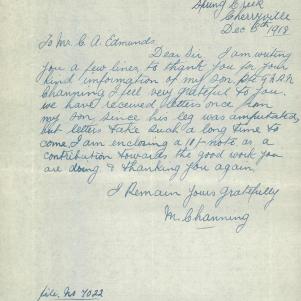 Spring Creek
Cherryville
Dec 6th 1918
To Mr. C. A. Edmunds.
Dear Sir, I am writing
you a few lines to thank you for your
kind information of my son Pte G H A N
Channing I feel very grateful to you.
we have received letters once from
my son since his leg was amputated,
but letters take such a long time to
come. I am enclosing a 10/- note as a
contribution towards the good work you
are doing & thanking you again.
I Remain Yours gratefully
M. Channing
file. No 7022